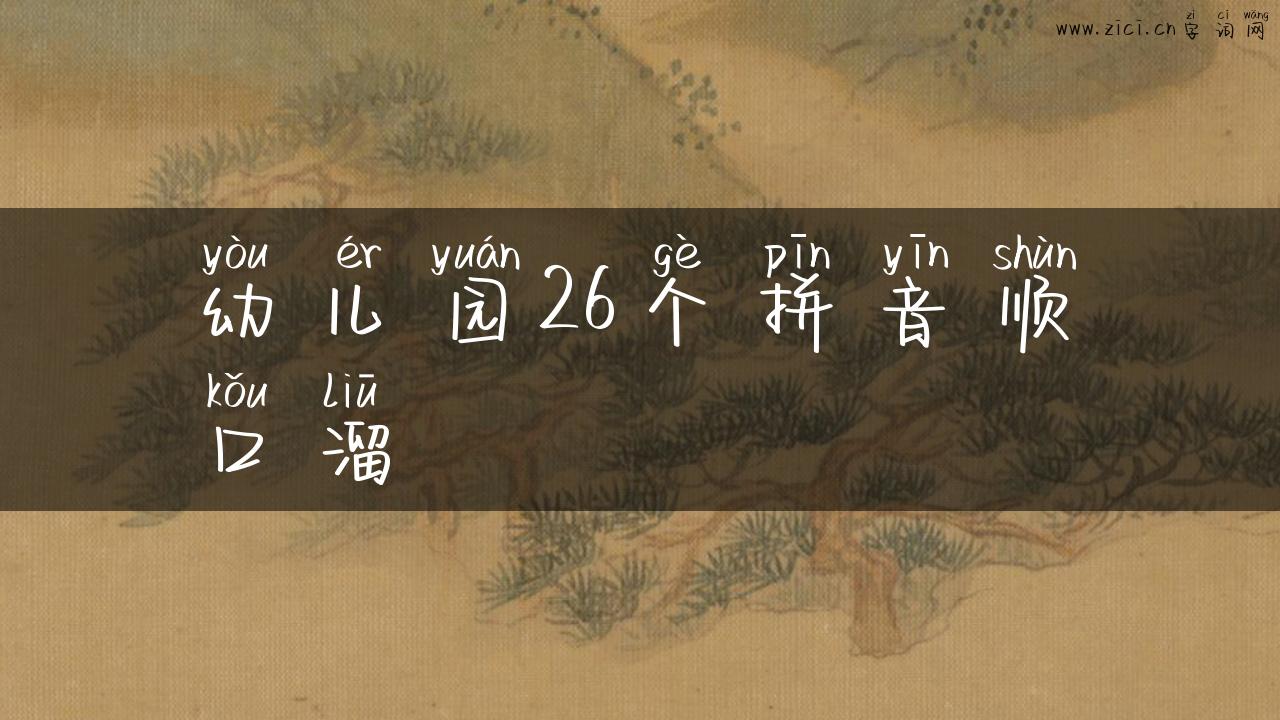 zì cí wǎng
www.zici.cn 字 词 网
yòu ér yuán gè pīn yīn shùn
幼 儿 园 26 个 拼 音 顺
kǒu liū
口 溜